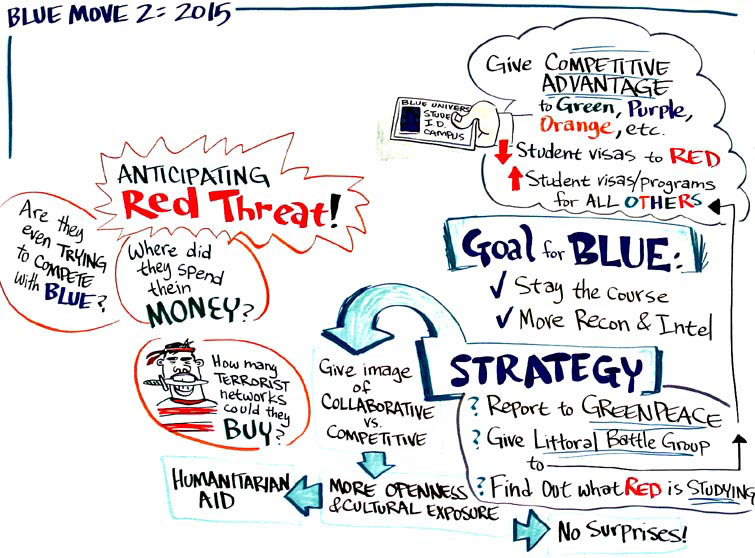 BLUE MOVE 2: 2015
Give COMPETITIVE
ADVANTAGE
to Green, Purple,
Orange, etc.
Student visas to RED
Student visas/programs
for ALL OTHERS
BLUE UNIVER
STUDE
I.D.
CAMPUS
ANTICIPATING
Red Threat!
Are they
even TRYING
to COMPETE
with BLUE?
Where did
they spend
thein
MONEY?
How many
TERRORIST
networks
could they
BUY?
Goal for BLUE:
✓ Stay the Course
✓ More Recon & Intel
STRATEGY
? Report to GREENPEACE
? Give Littoral Battle Group
to
? Find Out what RED is STUDYING
Give image
of
COLLABORATIVE
vs.
COMPETITIVE
MORE OPENNESS
& CULTURAL EXPOSURE
HUMANITARIAN
AID
No Surprises!